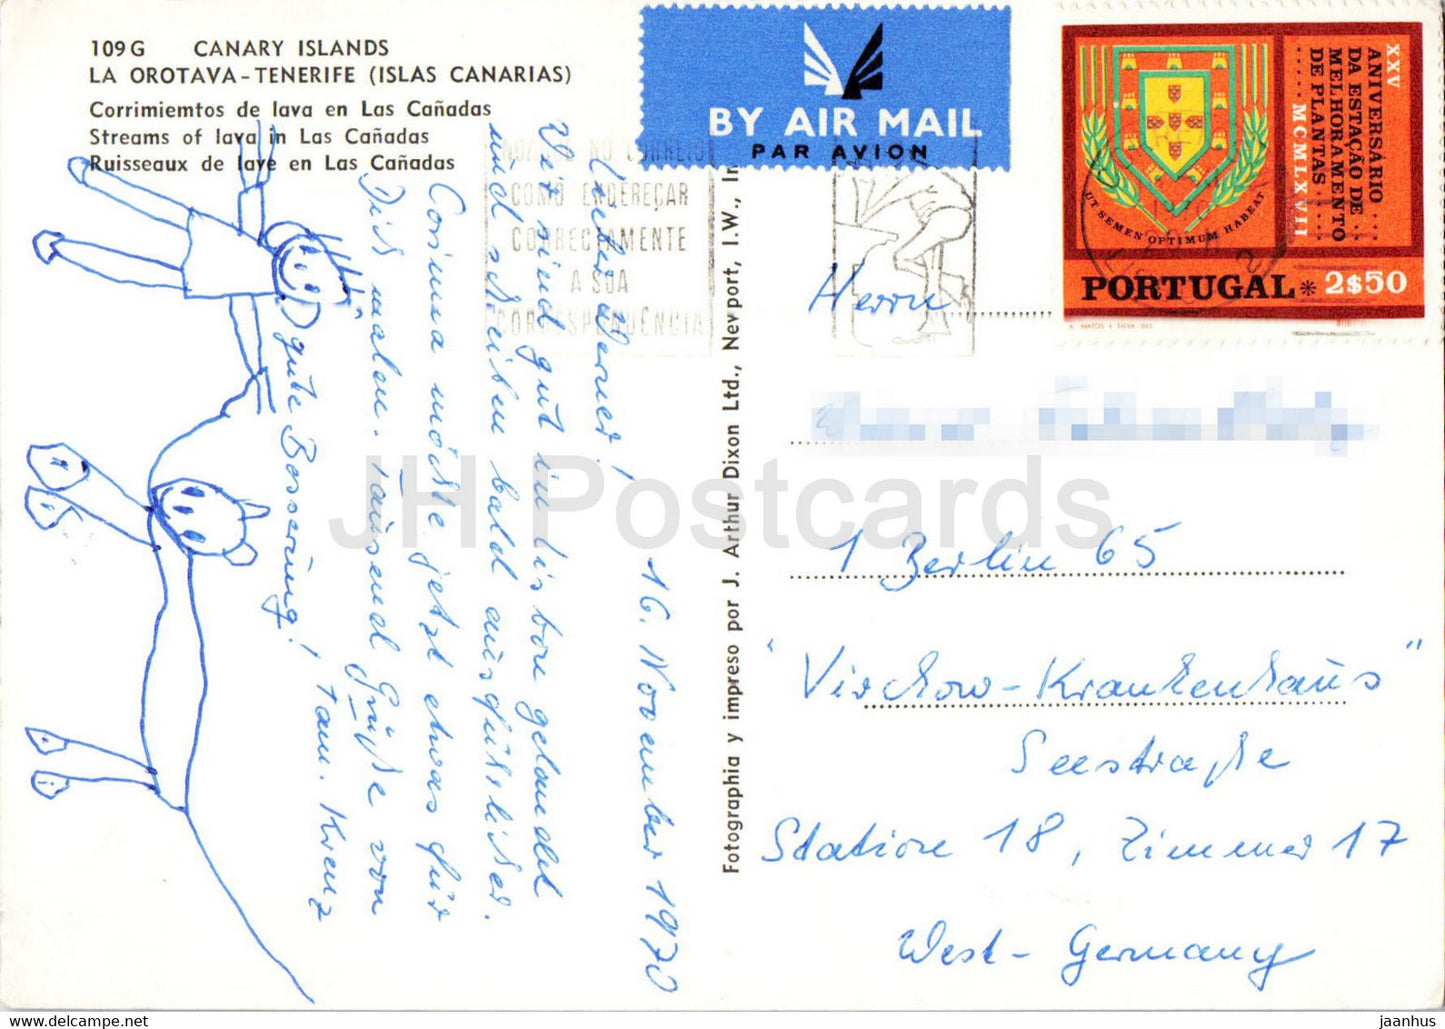 109 G CANARY ISLANDS
LA OROTAVA - TENERIFE (ISLAS CANARIAS)
Corrimiemtos de lava en Las Cañadas
Streams of lava in Las Cañadas
Ruisseaux de lave en Las Cañadas
BY AIR MAIL
PAR AVION
XXV
ANIVERSÁRIO ....
DA ESTAÇÃO DE ..
MELHORAMENTO
DE PLANTAS .....
...... MCMLXVII
UT SEMEN OPTIMUM HABEAT
PORTUGAL * 2$50
A. MATOS E SILVA DES.
NO CORREIO
COMO ENDEREÇAR
CORRECTAMENTE
A SUA
CORRESPONDÊNCIA
16. November 1970
Lieber Werner!
Wir sind gut in Lissabon gelandet
und schreiben bald ausführlicher.
Corinna möchte jetzt etwas für
Dich malen. Tausend Grüße von
Fam. Krenz
gute Besserung!
Fotographia y impreso por J. Arthur Dixon Ltd., Newport, I.W., In
Herrn
1 Berlin 65
"Virchow-Krankenhaus"
Seestraße
Station 18, Zimmer 17
West-Germany
JH Postcards
www.delcampe.net
jaanhus